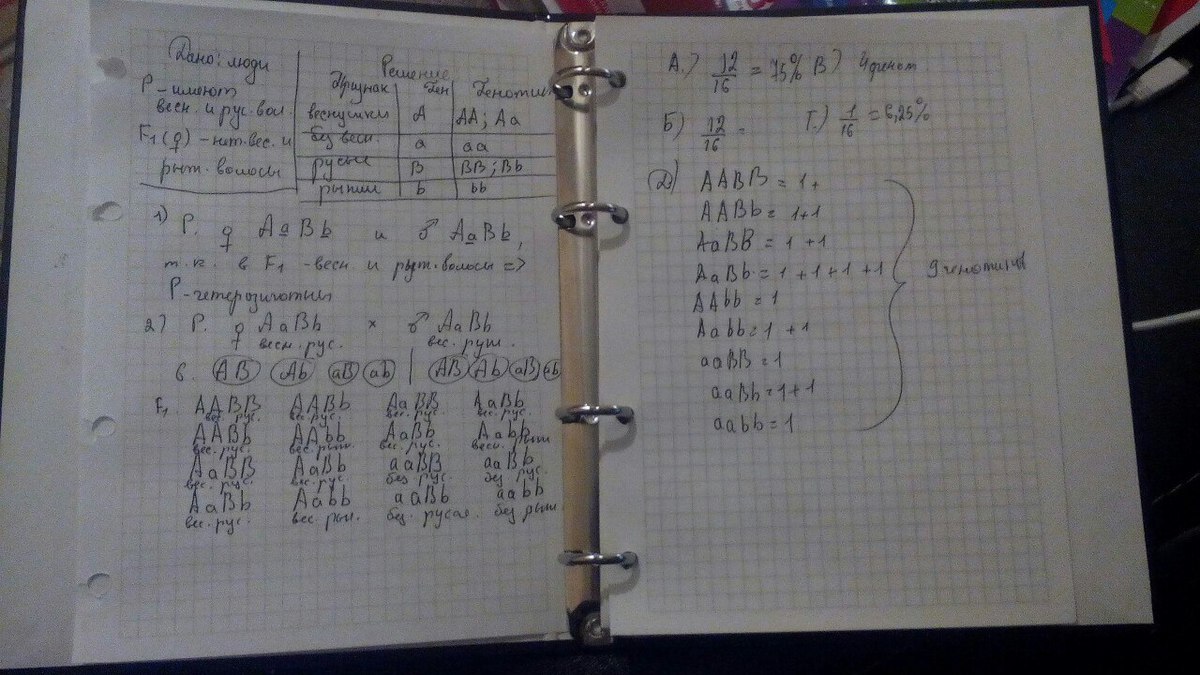 Дано: люди
Р-имеют
весн. и рус. вол.
F₁(♀) - нит. вес. и
рыж. волосы
Решение
Признак Ген Генотип
веснушки А АА; Аа
без весн. а аа
русые В ВВ; Вb
рыжие b bb
1) Р. ♀ АаВb и ♂ АаВb,
т.к. в F₁ -весн. и рыж. волосы =>
Р-гетерозиготны
2) Р. ♀ АаВb × ♂ АаВb
весн. рус. вес. руш.
G. АВ Аb аВ аb | АВ Аb аВ аb
F₁. ААВВ ААВb АаВВ АаВb
вес. рус. вес. рус. вес. рус. вес. рус.
ААВb ААbb АаВb Ааbb
вес. рус. вес. рыж. вес. рус. весн. рыж.
АаВВ АаВb ааВВ ааВb
вес. рус. вес. рус. без рус. без рус.
АаВb Ааbb ааВb ааbb
вес. рус. вес. рыж. без. русая. без рыж.
А.) 12/16 = 75% В) 4 фенот.
Б) 12/16 = Г.) 1/16 = 6,25%
Д) ААВВ = 1+
ААВb = 1+1
АаВВ = 1+1
АаВb = 1+1+1+1
ААbb = 1
Ааbb = 1+1
ааВВ = 1
ааВb = 1+1
ааbb = 1
9 генотипов